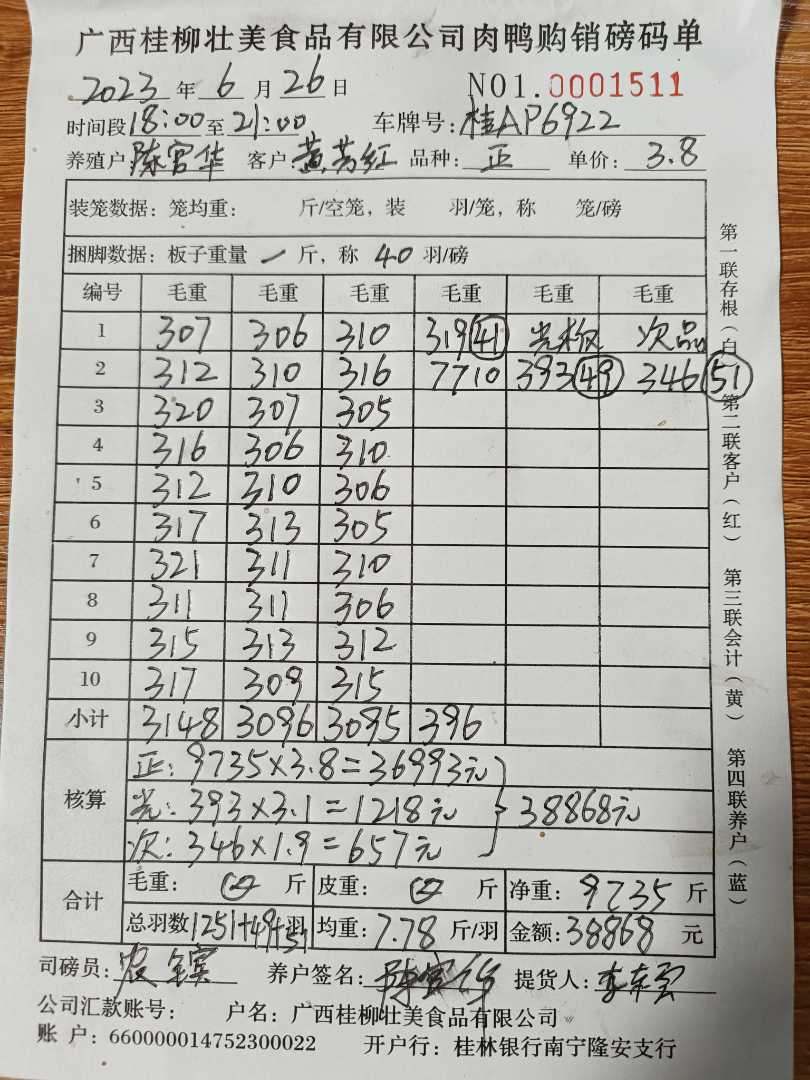 广西桂柳壮美食品有限公司肉鸭购销磅码单
2023 年 6 月 26 日 NO1.0001511
时间段 18:00 至 21:00 车牌号: 桂AP6922
养殖户 陈官华 客户: 黄芳红 品种: 正 单价: 3.8
装笼数据: 笼均重: 斤/空笼, 装 羽/笼, 称 笼/磅
捆脚数据: 板子重量 一 斤, 称 40 羽/磅
编号 毛重 毛重 毛重 毛重 毛重 毛重
1 307 306 310 319 41 光板 次品
2 312 310 316 7710 393 49 346 51
3 320 307 305
4 316 306 310
5 312 310 306
6 317 313 305
7 321 311 310
8 311 311 306
9 315 313 312
10 317 309 315
小计 3148 3096 3095 396
核算
正: 9735×3.8=36993元
光: 393×3.1=1218元 } 38868元
次: 346×1.9=657元
合计
毛重: 斤 皮重: 斤 净重: 9735 斤
总羽数 1251+49+51 羽 均重: 7.78 斤/羽 金额: 38868 元
司磅员: 养户签名: 提货人:
公司汇款账号: 户名: 广西桂柳壮美食品有限公司
账 户: 660000014752300022 开户行: 桂林银行南宁隆安支行
第一联存根(白) 第二联客户(红) 第三联会计(黄) 第四联养户(蓝)